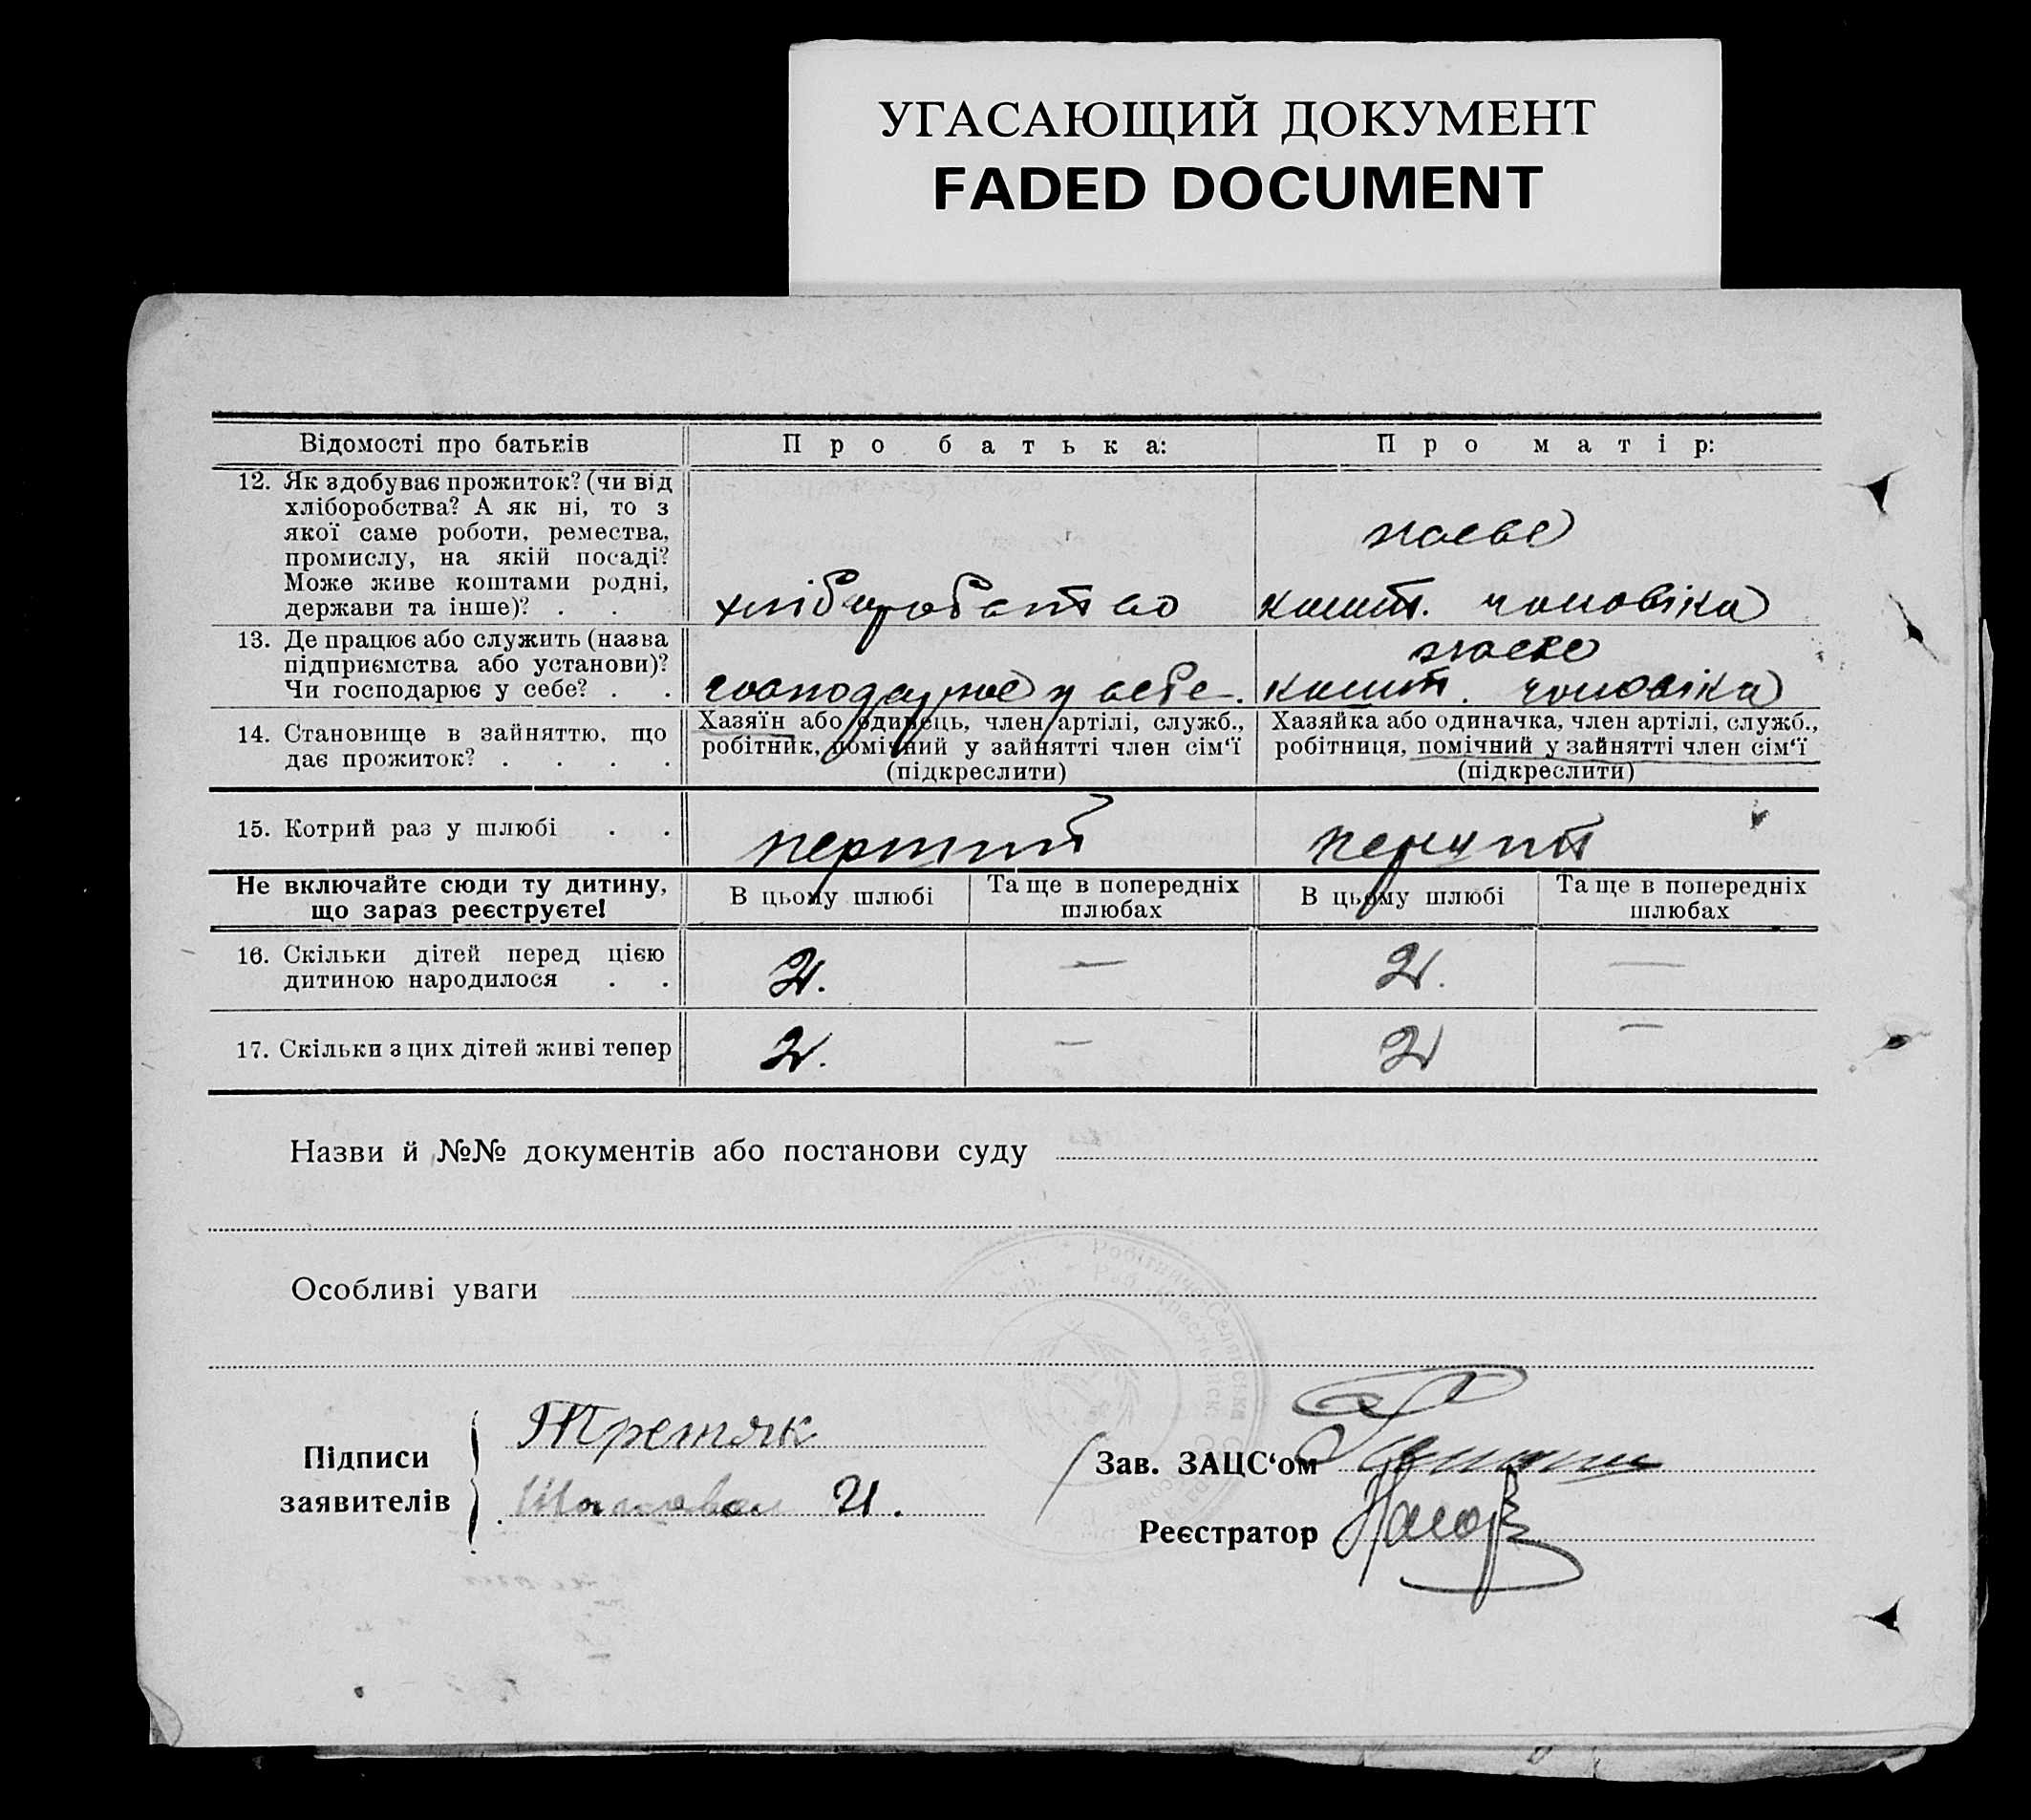 УГАСАЮЩИЙ ДОКУМЕНТ
FADED DOCUMENT
Відомості про батьків
Про батька:
Про матір:
12. Як здобуває прожиток? (чи від
хліборобства? А як ні, то з
якої саме роботи, ремества,
промислу, на якій посаді?
Може живе коштами родні,
держави та інше)? . . .
хліборобство
живе
кошт. чоловіка
13. Де працює або служить (назва
підприємства або установи)?
Чи господарює у себе? . .
господарює у себе
живе
кошт. чоловіка
14. Становище в зайняттю, що
дає прожиток? . . . .
Хазяїн або одинець, член артілі, служб.,
робітник, помічний у зайнятті член сім‘ї
(підкреслити)
Хазяйка або одиначка, член артілі, служб.,
робітниця, помічний у зайнятті член сім‘ї
(підкреслити)
15. Котрий раз у шлюбі . .
перший
перший
Не включайте сюди ту дитину,
що зараз реєструєте!
В цьому шлюбі
Та ще в попередніх
шлюбах
В цьому шлюбі
Та ще в попередніх
шлюбах
16. Скільки дітей перед цією
дитиною народилося . .
2.
—
2.
—
17. Скільки з цих дітей живі тепер
2.
—
2
—
Назви й №№ документів або постанови суду
Особливі уваги
Підписи
заявителів
Третяк
Зав. ЗАЦС‘ом
Реєстратор